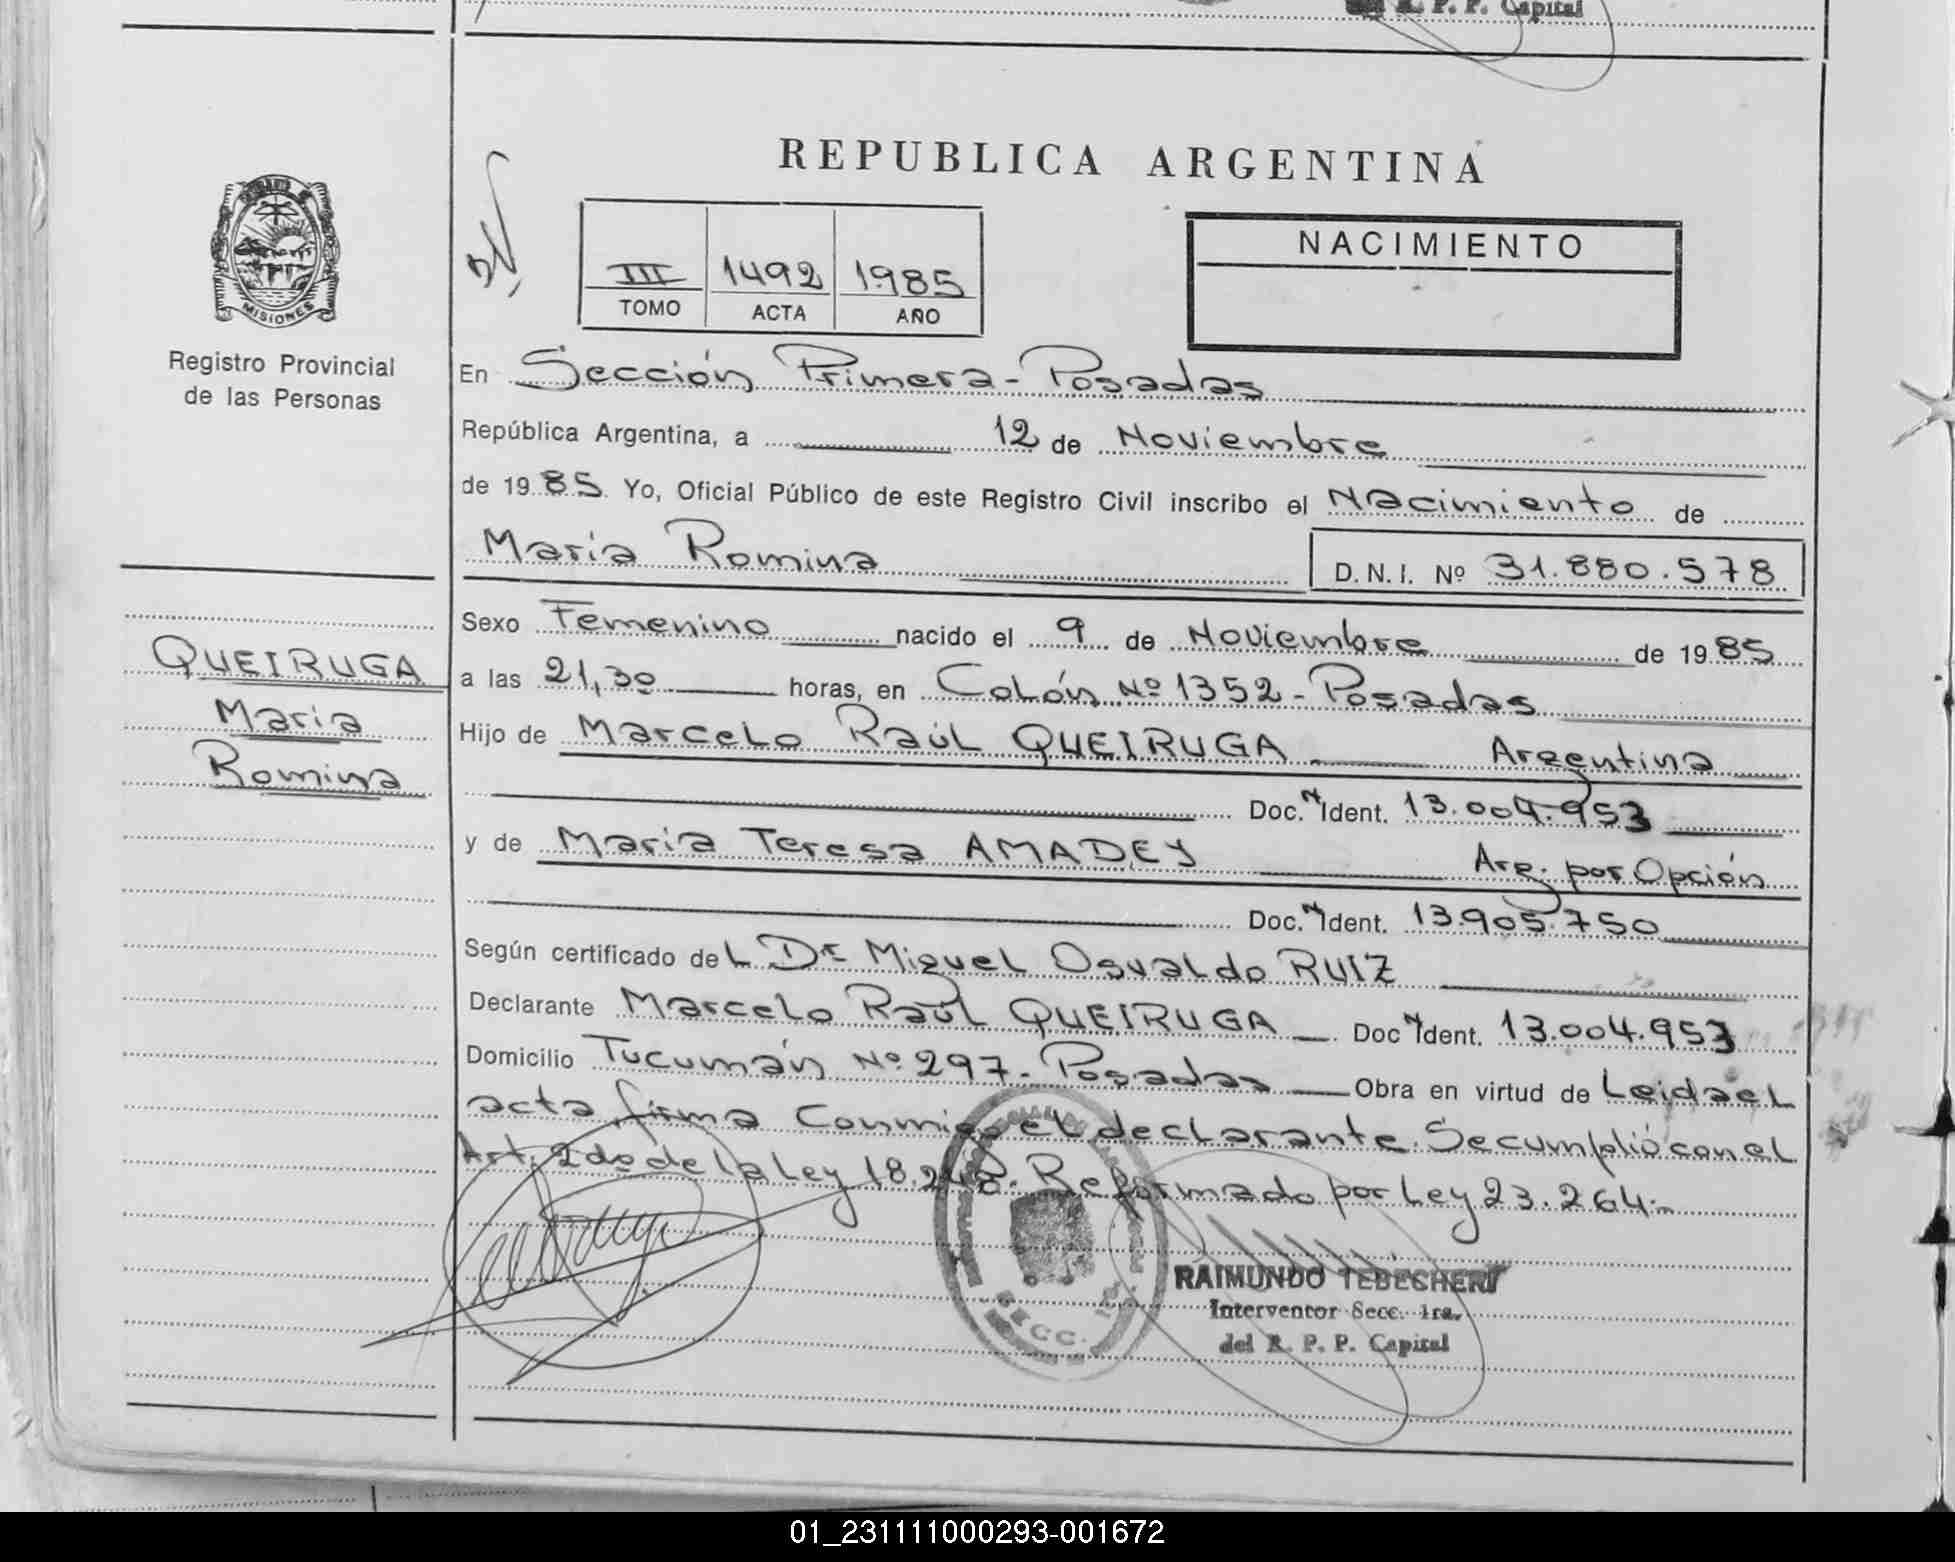 R. P. P. Capital
REPUBLICA ARGENTINA
NACIMIENTO
III 1492 1985
TOMO ACTA AÑO
MISIONES
Registro Provincial
de las Personas
En Sección Primera - Posadas
República Argentina, a 12 de Noviembre
de 1985 Yo, Oficial Público de este Registro Civil inscribo el Nacimiento de
María Romina D.N.I. Nº 31.880.578
Sexo Femenino nacido el 9 de Noviembre de 1985
QUEIRUGA
María
Romina
a las 21,30 horas, en Colón Nº 1352 - Posadas
Hijo de Marcelo Raúl QUEIRUGA Argentina
Doc. Ident. 13.004.953
y de María Teresa AMADEY Arg. por Opción
Doc. Ident. 13.905.750
Según certificado del Dr Miguel Osvaldo RUIZ
Declarante Marcelo Raúl QUEIRUGA Doc Ident. 13.004.953
Domicilio Tucumán Nº 297 - Posadas Obra en virtud de Leida el
acta firma Conmigo el declarante. Se cumplió con el
Art. 2do de la Ley 18.248. Reformado por Ley 23.264.-
SECC. 1ª
RAIMUNDO TEBECHERI
Interventor Secc. 1ra.
del R. P. P. Capital
01_231111000293-001672